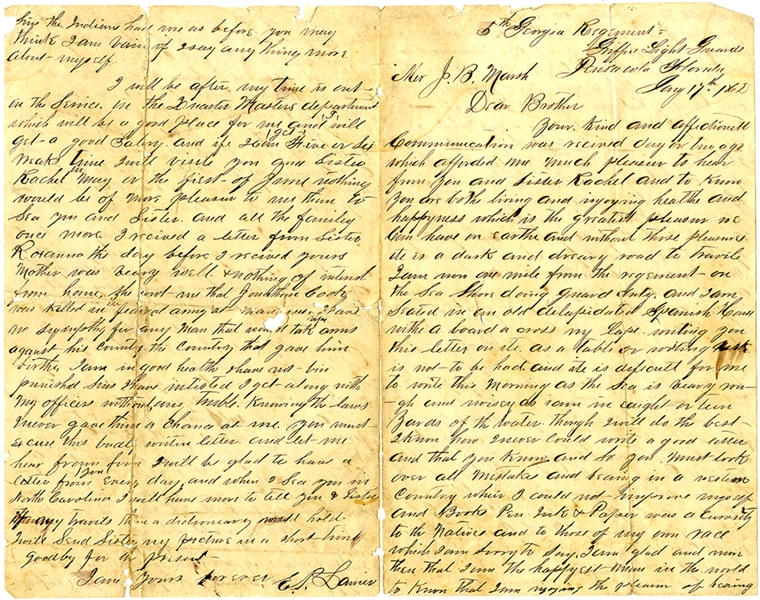 5th Georgia Regement
Griffin Light Guards
Pensacola Florida
Jary 17th 1862
Mr J. B. Marsh
Dear Brother
Your Kind and affectionett
Communication was recived day or two ago
which afforded me much pleasur to hear
from you and Sister Rachel and to Know
you are both living and injoying healthe and
happyness which is the greatest pleasur we
Can have on earthe and without those pleasures
ite is a dark and dreary road to travile
I am now one mile from the regement on
the Sea Shore doing guard duty. and I am
Seated in an old delapidated Spanish house
withe a board a cross my Laps writing you
this letter on ite. as a table or writing desk
is not to be had and ite is deficult for me
to write this Morning as the Sea is veary rou-
gh and noisey as I am in eaight or teen
Yards of the water though I will do the best
I Know how I never could write a good letter
and that you Know and So you Must look
over all Mistakes and beaing in a western
Country where I could not improve myself
and Books Pen Ink & Paper was a Curosity
to the Natives and to those of my own race
which I am Sorry to Say, I am glad and more
then that I am the happyest Man in the world
to Know that I am injoying the pleasur of beaing
the Indians have me as before you may
think I am vain if I say any thing more
about myself.
I will be after my time is out
in the Service in the Quarter Masters department
which will be a good place for me and I will
get a good Salary and ife I can get Five or Six
weaks time I will visite you and Sister
Rachel in May or the first of June nothing
would be of more pleasur to me then to
Sea you and Sister and all the familey
once more I recived a letter from Sister
Rosanna the day before I recived yours
Mother was veary well & nothing of intrust
from home, She wrot me that Jonathan Cooty
was Killed in federal army at manasas, I have
no Sympothy for any Man that would take up arms
against his Country the Country that gave him
birthe, I am in good healthe I have not bin
punished Sins I have inlisted I get along with
my officers without any truble. Knowing the laws
I never gave them a chance at me. you must
excuse this badly writen letter and let me
hear from you I will be glad to have a
letter from you Every day, and when I Sea you in
North Carolina I will have more to tell you & Sister
of my travils then a dictionary would hold
I will Send Sister my picture in a Short time
goodby for the present
I am yours forever E. P. Lanier